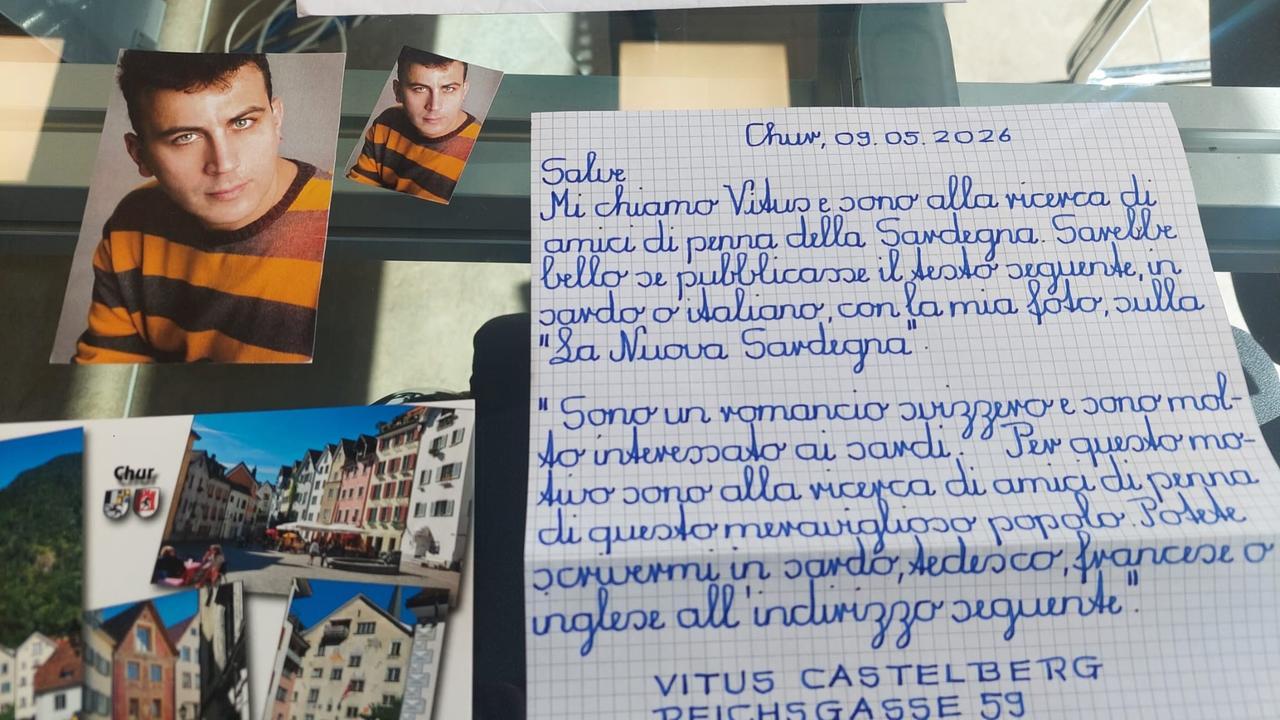 Chur, 09.05.2026
Salve
Mi chiamo Vitus e sono alla ricerca di
amici di penna della Sardegna. Sarebbe
bello se pubblicasse il testo seguente, in
sardo o italiano, con la mia foto, sulla
"La Nuova Sardegna".
"Sono un romancio svizzero e sono mol-
to interessato ai sardi. Per questo mo-
tivo sono alla ricerca di amici di penna
di questo meraviglioso popolo. Potete
scrivermi in sardo, tedesco, francese o
inglese all'indirizzo seguente".
VITUS CASTELBERG
REICHSGASSE 59
Chur